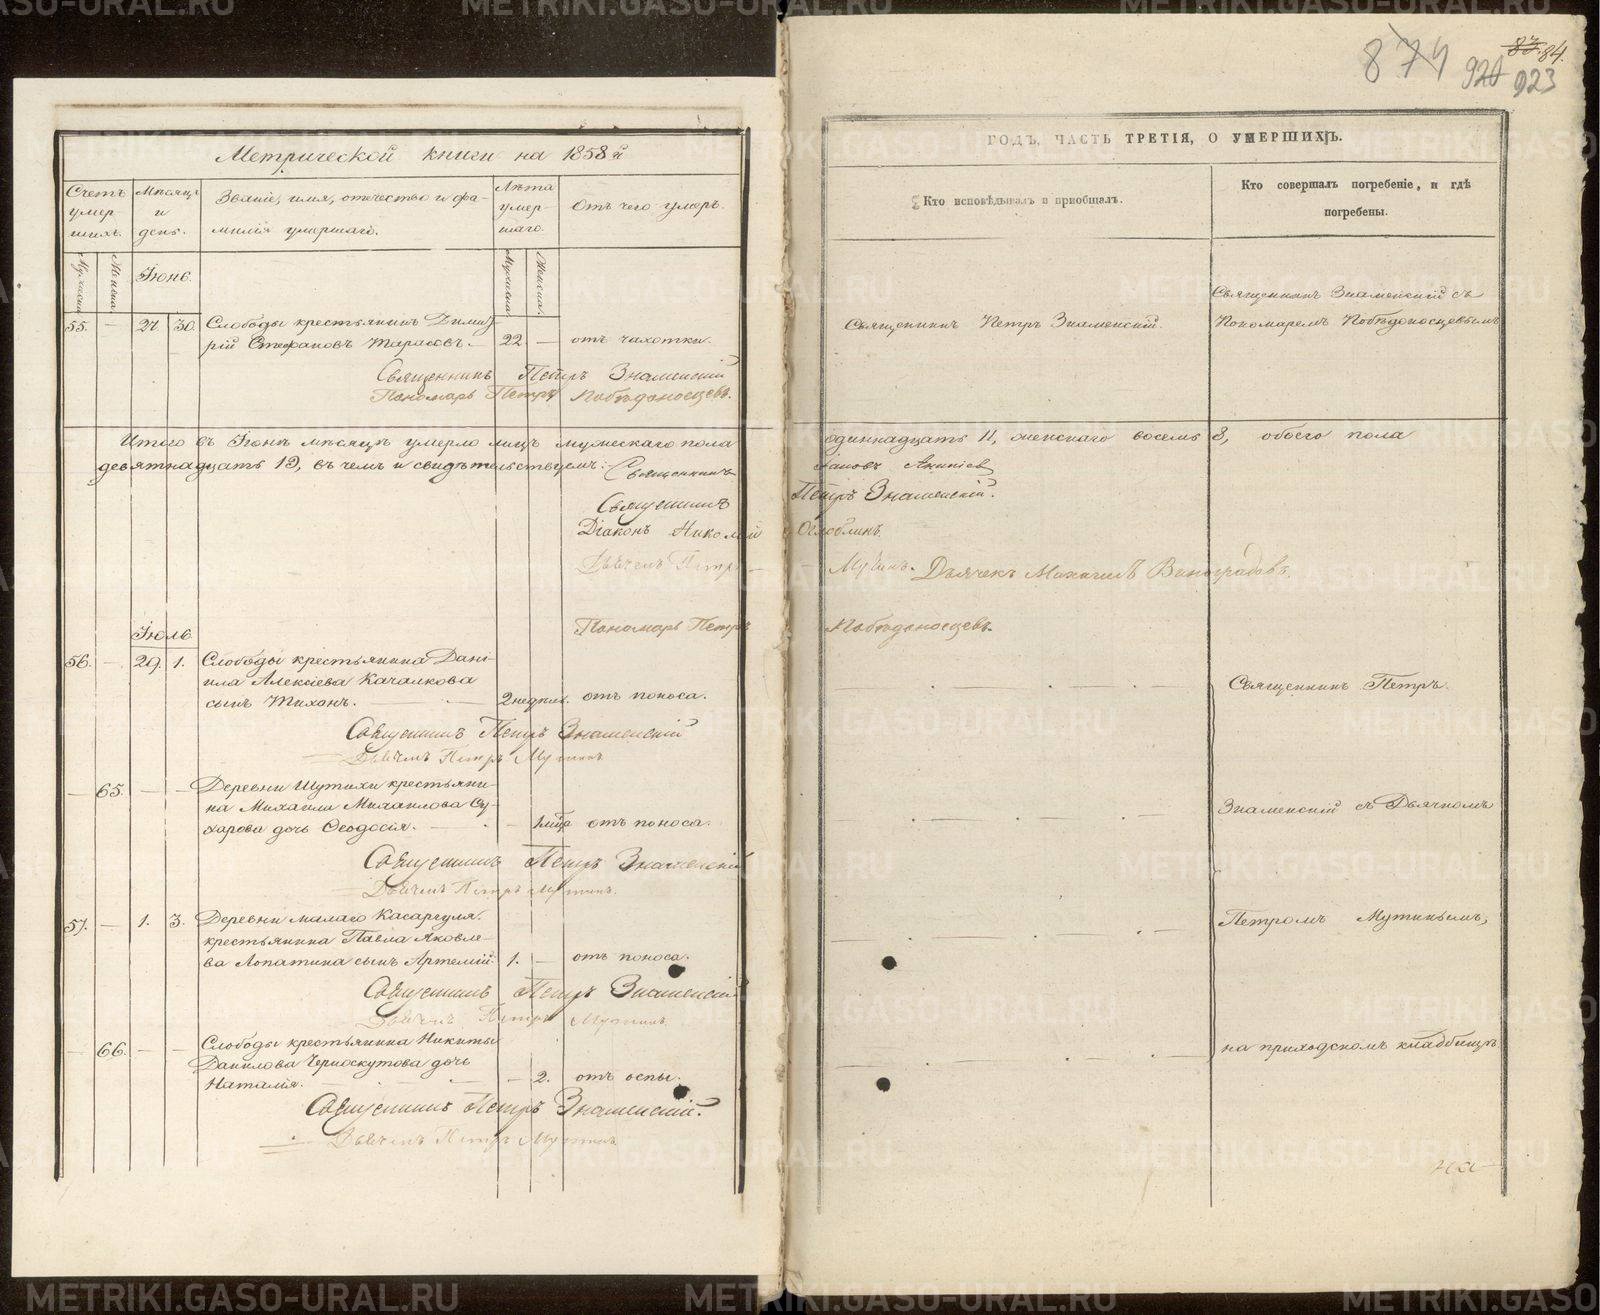 83. 84.
874 920 923
Метрической книги на 1858 й
ГОДЪ, ЧАСТЬ ТРЕТІЯ, О УМЕРШИХЪ.
Счетъ умершихъ.
Мѣсяцъ и день.
Званіе, имя, отечество и фамилія умершаго.
Лѣта умершаго.
Отъ чего умеръ.
Кто исповѣдывалъ и пріобщалъ.
Кто совершалъ погребеніе, и гдѣ
погребены.
Мужеска. Женска. Іюнь. Мужеска. Женска.
Священникъ Знаменскій съ
55. — 27. 30. Слободы крестьянинъ Димит-
рій Стефановъ Тарасовъ. — 22. — отъ чахотки.
Священникъ Петръ Знаменскій.
Пономаремъ Побѣдоносцевымъ
Священникъ Петръ Знаменскій
Пономарь Петръ Побѣдоносцевъ.
Итого въ Іюнѣ мѣсяцѣ умерло лицъ мужескаго пола одиннадцать 11, женскаго восемь 8, обоего пола
девятнадцать 19, въ чемъ и свидѣтельствуемъ: Священникъ Іаковъ
Священникъ Петръ Знаменскій.
Діаконъ Николай Оглоблинъ.
Дьячекъ Петръ Мутинъ. Дьячекъ Михаилъ Виноградовъ.
Пономарь Петръ Побѣдоносцевъ.
Іюль
56. — 29. 1. Слободы крестьянина Дані-
ила Алексіева Качалкова
сынъ Тихонъ. — 2 недѣль. отъ поноса.
Священникъ Петръ
Священникъ Петръ Знаменскій
Дьячекъ Петръ Мутинъ
— 65. — — Деревни Шутихи крестьяни-
на Михаила Михаилова Су-
харова дочь Ѳеодосія. — 1 мѣц отъ поноса.
Знаменскій съ Дьячкомъ
Священникъ Петръ Знаменскій
Дьячекъ Петръ Мутинъ.
57. — 1. 3. Деревни малаго Касаргуля.
крестьянина Павла Яковле-
ва Лопатина сынъ Артемій. 1. — отъ поноса.
Петромъ Мутинымъ,
Священникъ Петръ Знаменскій
Дьячекъ Петръ Мутинъ.
— 66. — — Слободы крестьянина Никиты
Данилова Черноскутова дочь
Наталія. — 2. отъ оспы.
на приходскомъ кладбищѣ
Священникъ Петръ Знаменскій.
Дьячекъ Петръ Мутинъ
на
METRIKI.GASO-URAL.RU